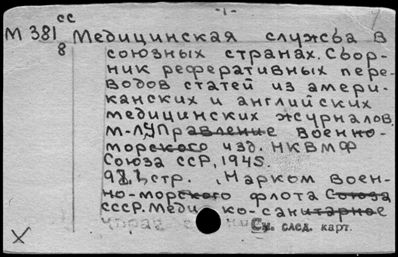 -1-
сс
М 381 Медицинская служба в
8 союзных странах. Сбор-
ник реферативных пере-
водов статей из амери-
канских и английских
медицинских журналов.
М.-Л. Управление военно-
морского изд. НКВМФ
Союза ССР, 1945.
стр. Нарком воен-
но-морского флота Союза
СССР. Меди ко-санитарное
См. след. карт.